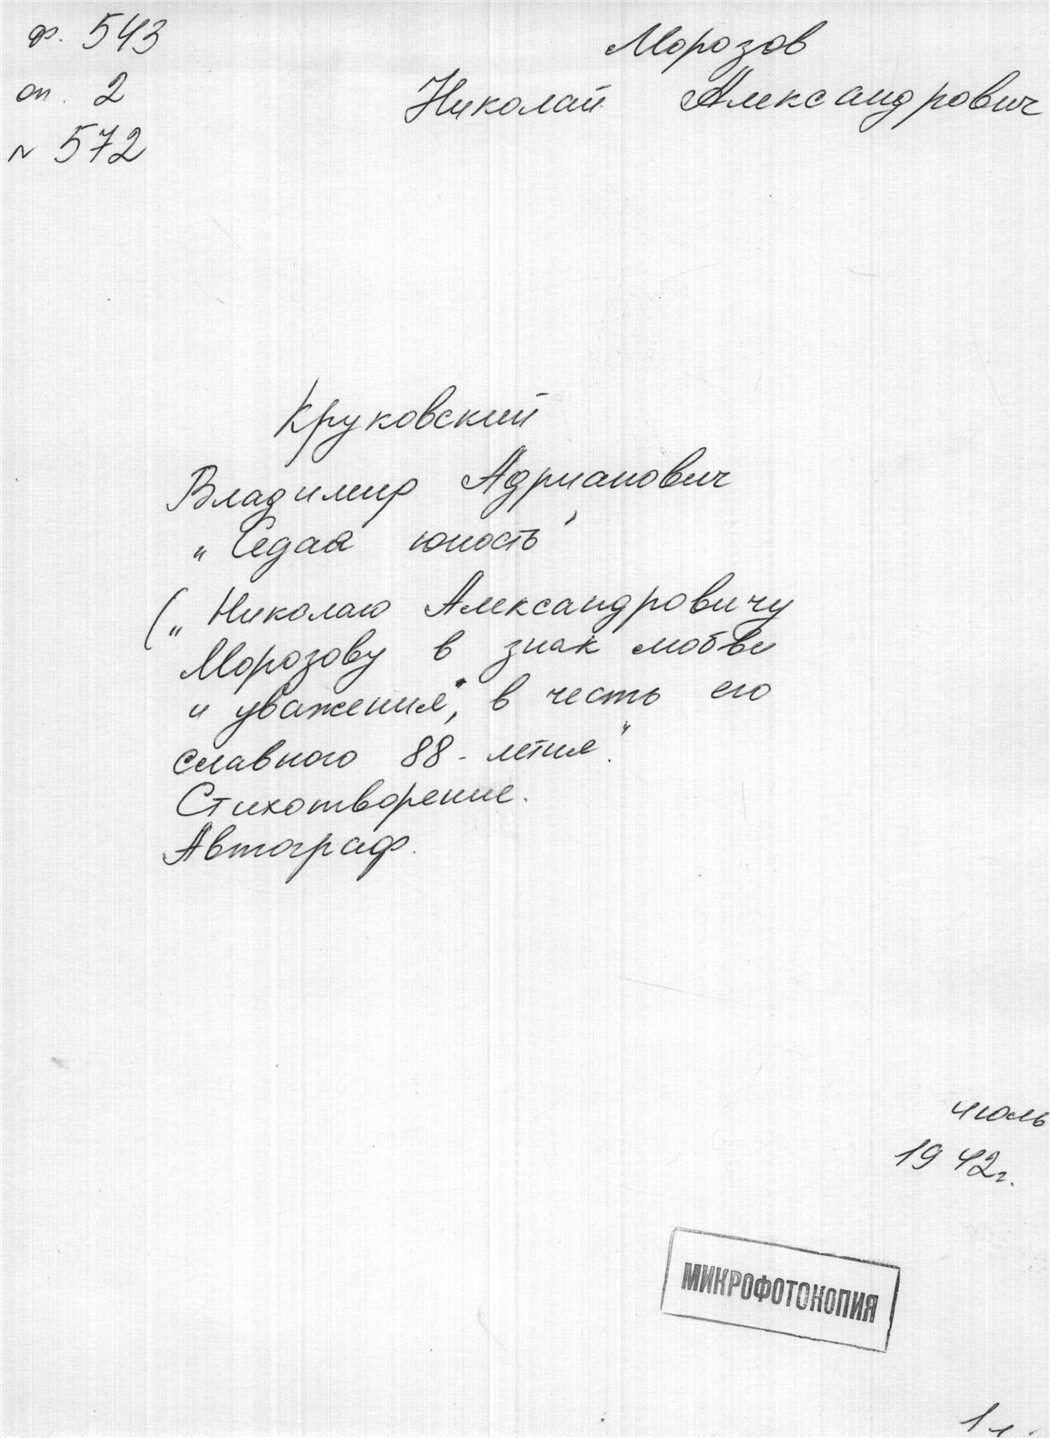 ф. 543
оп. 2
N 572
Морозов
Николай Александрович
Круковский
Владимир Адрианович
„Седая юность"
(„Николаю Александровичу
Морозову в знак любви
и уважения", в честь его
славного 88-летия."
Стихотворение.
Автограф.
июль
1942г.
МИКРОФОТОКОПИЯ
1 л.